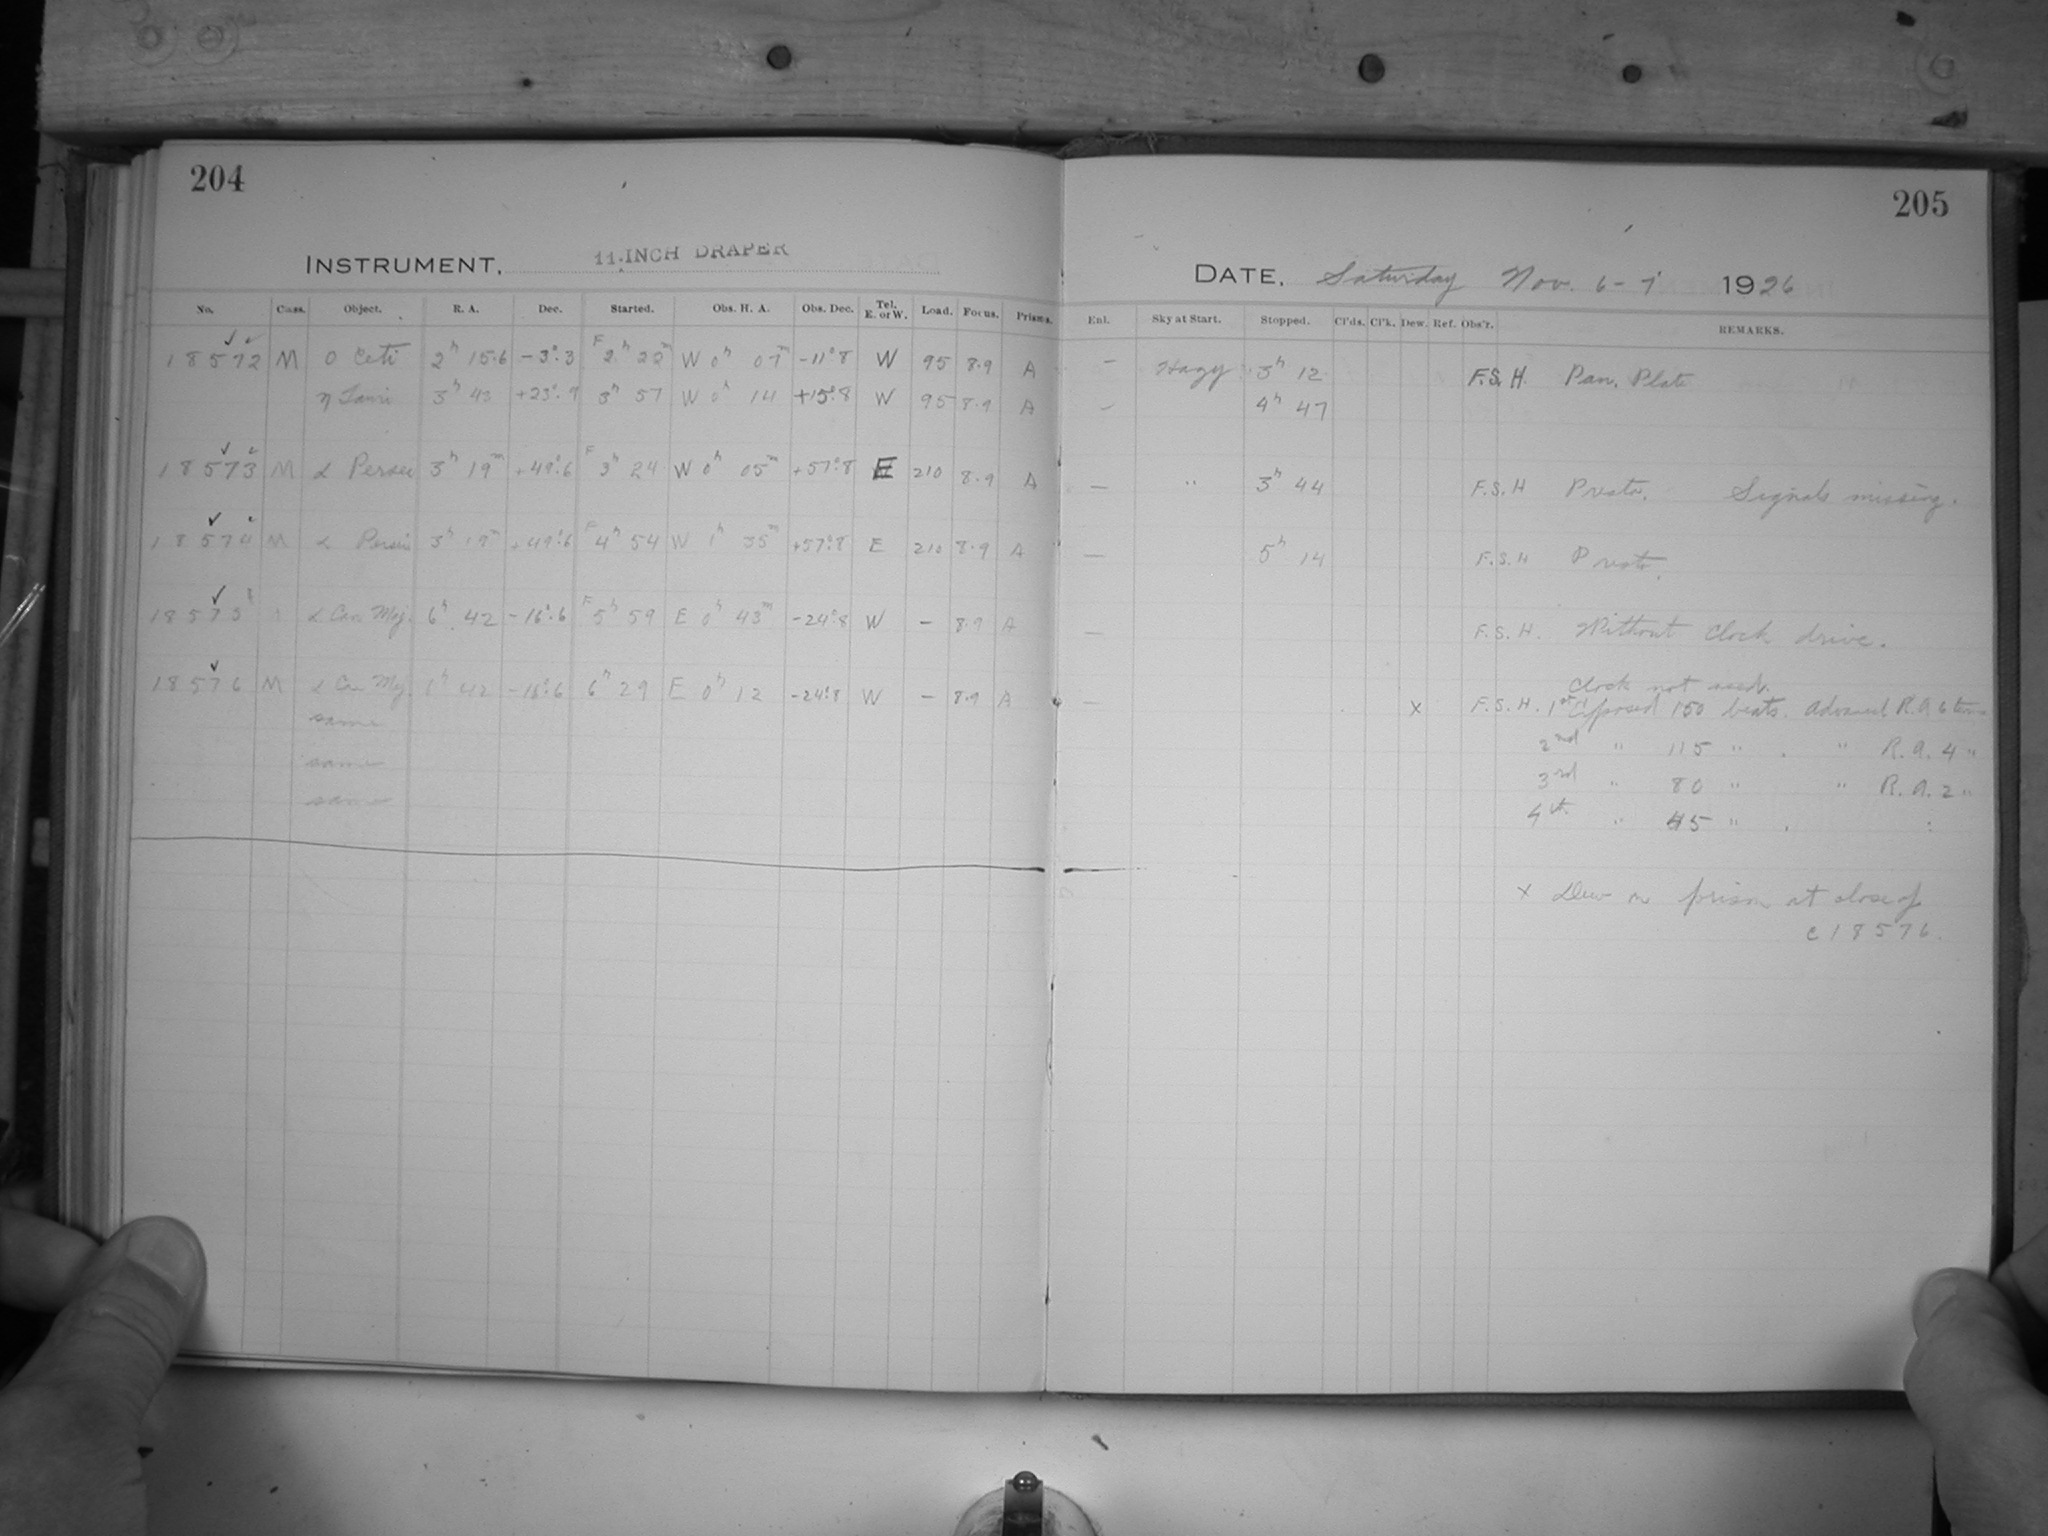 204
INSTRUMENT, 11-INCH DRAPER
No. Class. Object. R. A. Dec. Started. Obs. H. A. Obs. Dec. Tel. E. or W. Load. Focus. Prisms.
18572 M o Ceti 2h 15.6 -3°.3 F 2h 22m W 0h 07m -11°.8 W 95 8.9 A
η Tauri 3h 43 +23°.9 3h 57 W 0h 14 +15°.8 W 95 8.9 A
18573 M α Persei 3h 19m +49°.6 F 3h 24 W 0h 05m +57°.8 E 210 8.9 A
18574 M α Persei 3h 19m +49°.6 F 4h 54 W 1h 35m +57°.8 E 210 8.9 A
18575 α Can Maj. 6h 42 -16°.6 F 5h 59 E 0h 43m -24°.8 W - 8.9 A
18576 M α Can Maj. 6h 42 -16°.6 6h 29 E 0h 12 -24°.8 W - 8.9 A
same
same
same
205
DATE, Saturday Nov. 6-7 1926
Enl. Sky at Start. Stopped. Cl'ds. Cl'k. Dew. Ref. Obs'r. REMARKS.
- Hazy 3h 12 F.S.H. Pan. Plate
- 4h 47
- " 3h 44 F.S.H Presto. Signals missing.
- 5h 14 F.S.H Presto.
- F.S.H. Without clock drive.
Clock not used.
- x F.S.H. 1st exposed 150 beats. Advanced R.A 6 turns
2nd " 115 " . " R.A. 4 "
3rd " 80 " " R.A. 2 "
4th " 45 " .
x Dew on prism at close of
c 18576.